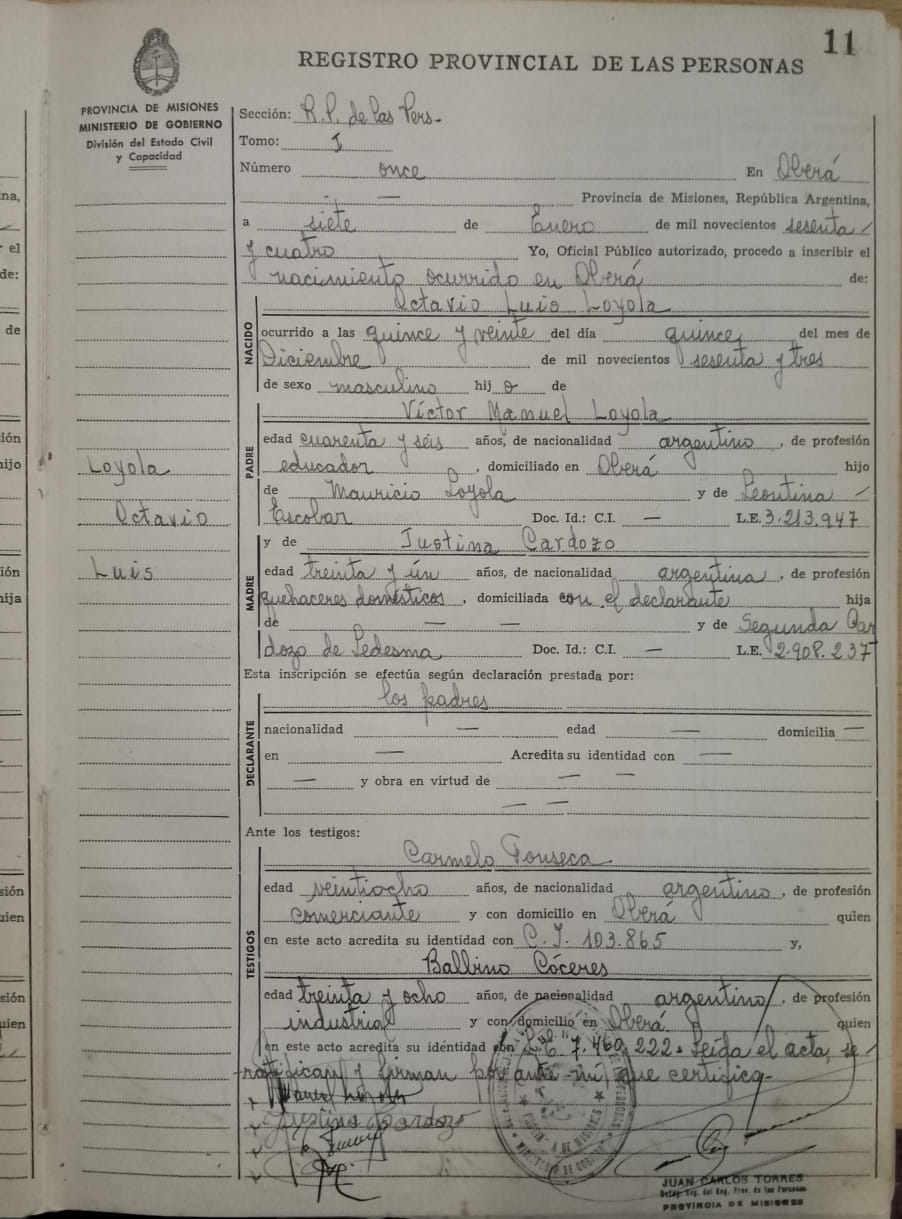 11
REGISTRO PROVINCIAL DE LAS PERSONAS
PROVINCIA DE MISIONES
MINISTERIO DE GOBIERNO
División del Estado Civil
y Capacidad
Sección: R.P. de las Pers-
Tomo: I
Número once En Oberá
- — Provincia de Misiones, República Argentina,
a siete de Enero de mil novecientos sesenta
y cuatro Yo, Oficial Público autorizado, procedo a inscribir el
nacimiento ocurrido en Oberá de:
NACIDO
Octavio Luis Loyola
ocurrido a las quince y veinte del día quince del mes de
Diciembre de mil novecientos sesenta y tres
de sexo masculino hij o de
PADRE
Víctor Manuel Loyola
edad cuarenta y seis años, de nacionalidad argentino, de profesión
educador, domiciliado en Oberá hijo
de Mauricio Loyola y de Leontina
Escobar Doc. Id.: C.I. — L.E. 3.213.947
Loyola
Octavio
Luis
MADRE
y de Justina Cardozo
edad treinta y ún años, de nacionalidad argentina, de profesión
quehaceres domésticos, domiciliada con el declarante hija
de — — y de Segunda Car
dozo de Ledesma Doc. Id.: C.I. — L.E. 2.908.237
Esta inscripción se efectúa según declaración prestada por:
DECLARANTE
los padres
nacionalidad — edad — domicilia —
en — Acredita su identidad con —
— y obra en virtud de — —
— —
Ante los testigos:
TESTIGOS
Carmelo Fonseca
edad veintiocho años, de nacionalidad argentino, de profesión
comerciante y con domicilio en Oberá quien
en este acto acredita su identidad con C.I. 103.865 y,
Balbino Cóceres
edad treinta y ocho años, de nacionalidad argentino, de profesión
industrial y con domicilio en Oberá quien
en este acto acredita su identidad con L.E. 7.469.222. Leída el acta, se
ratifican y firman por ante mí, que certifico-
Justina Cardozo
JUAN CARLOS TORRES
PROVINCIA DE MISIONES